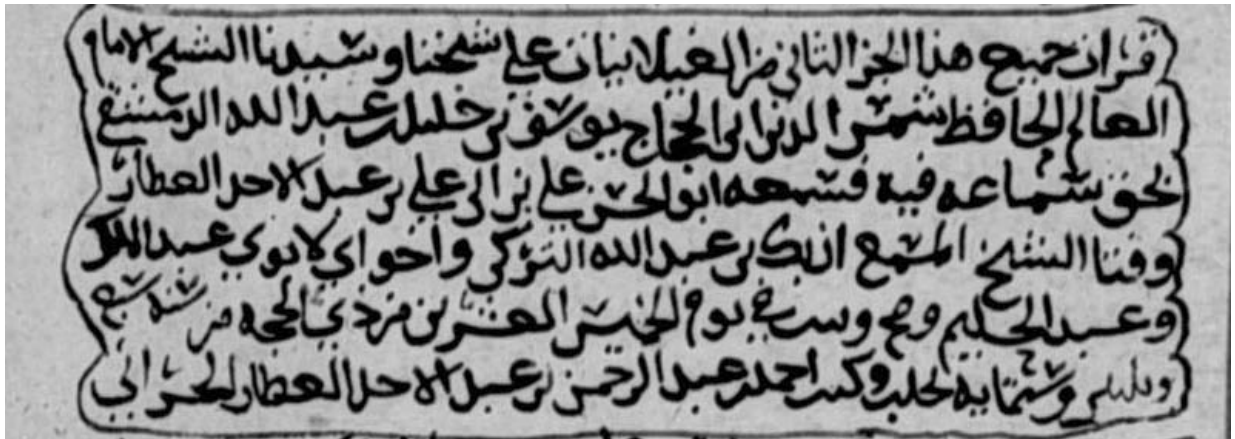 قرات جميع هذا الجز الثاني من الغيلانيات على شيخنا وسيدنا الشيخ الامام
العالم الحافظ شمس الدين ابي الحجاج يوسف بن خليل بن عبد الله الدمشقي
بحق سماعه فيه فسمعه ابو الحسن علي بن ابي علي بن عبد الاحد العطار
وفتا الشيخ المسمع ازبك بن عبد الله التركي واخواي لابوي عبد الملك
وعبد الحليم وصح يوم الخميس العشرين من ذي الحجة من سنة سبع
وثلثين وستماية بحلب وكتب احمد بن عبد الرحمن بن عبد الاحد العطار الحراني